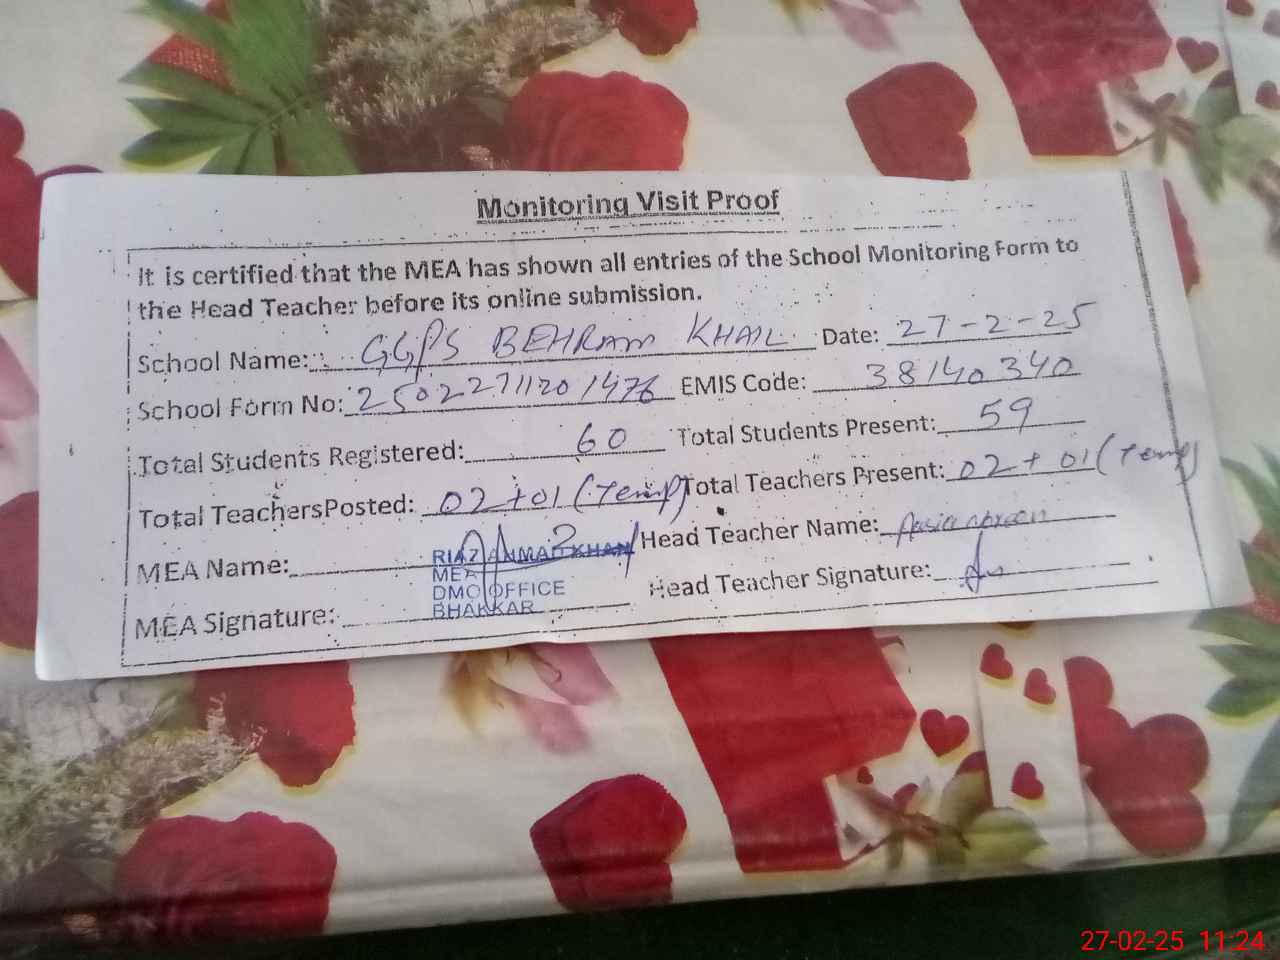 Monitoring Visit Proof
It is certified that the MEA has shown all entries of the School Monitoring Form to
the Head Teacher before its online submission.
School Name: GGPS BEHRAM KHAIL Date: 27-2-25
School Form No: 25022711201476 EMIS Code: 38140340
Total Students Registered: 60 Total Students Present: 59
Total TeachersPosted: 02+01 (Temp) Total Teachers Present: 02+01 (Temp)
MEA Name: RIAZ AHMAD KHAN Head Teacher Name:
MEA
DMO OFFICE
BHAKKAR
MEA Signature: Head Teacher Signature:
27-02-25 11:24